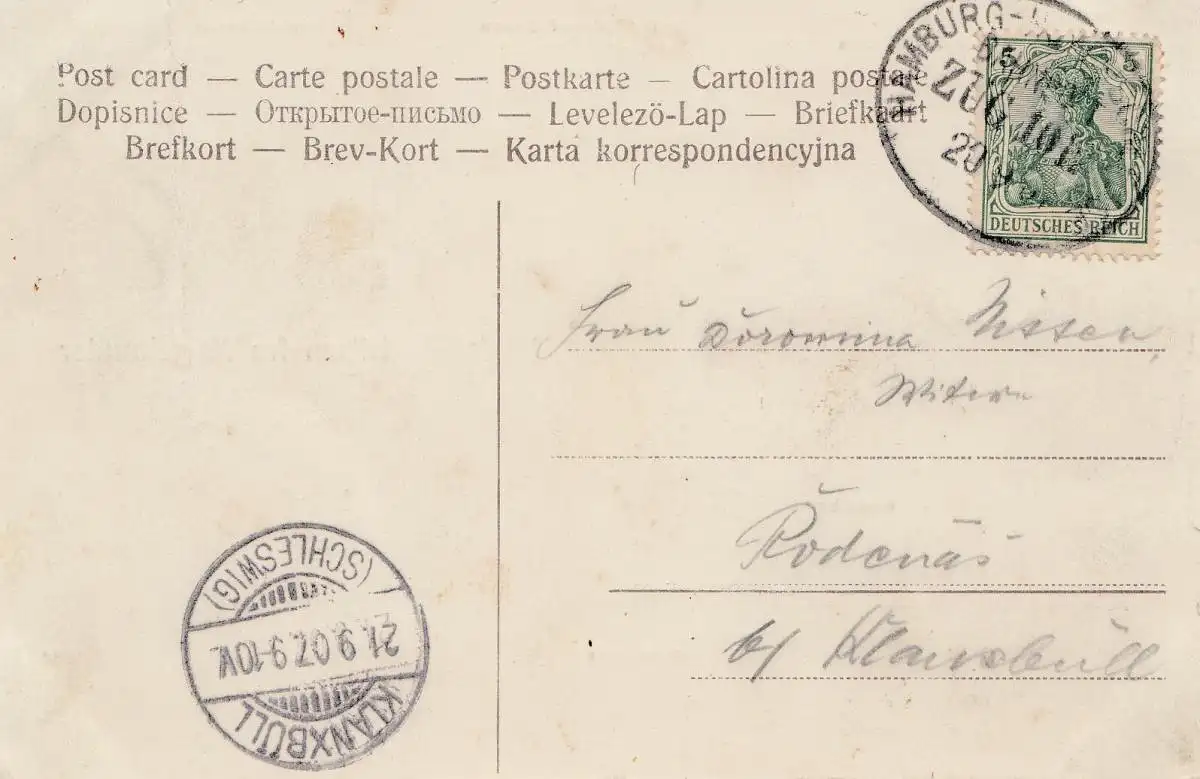 Post card — Carte postale — Postkarte — Cartolina postale
Dopisnice — Открытое-письмо — Levelező-Lap — Briefkaart
Brefkort — Brev-Kort — Karta korrespondencyjna
HAMBURG-
ZUG 1012
20
5 5
DEUTSCHES REICH
Frau Nissen,
Rodenäs
b/ Klanxbüll
(SCHLESWIG)
21.9.07.9-10V.
KLANXBÜLL